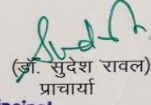 (डॉ. सुदेश रावल)
प्राचार्या